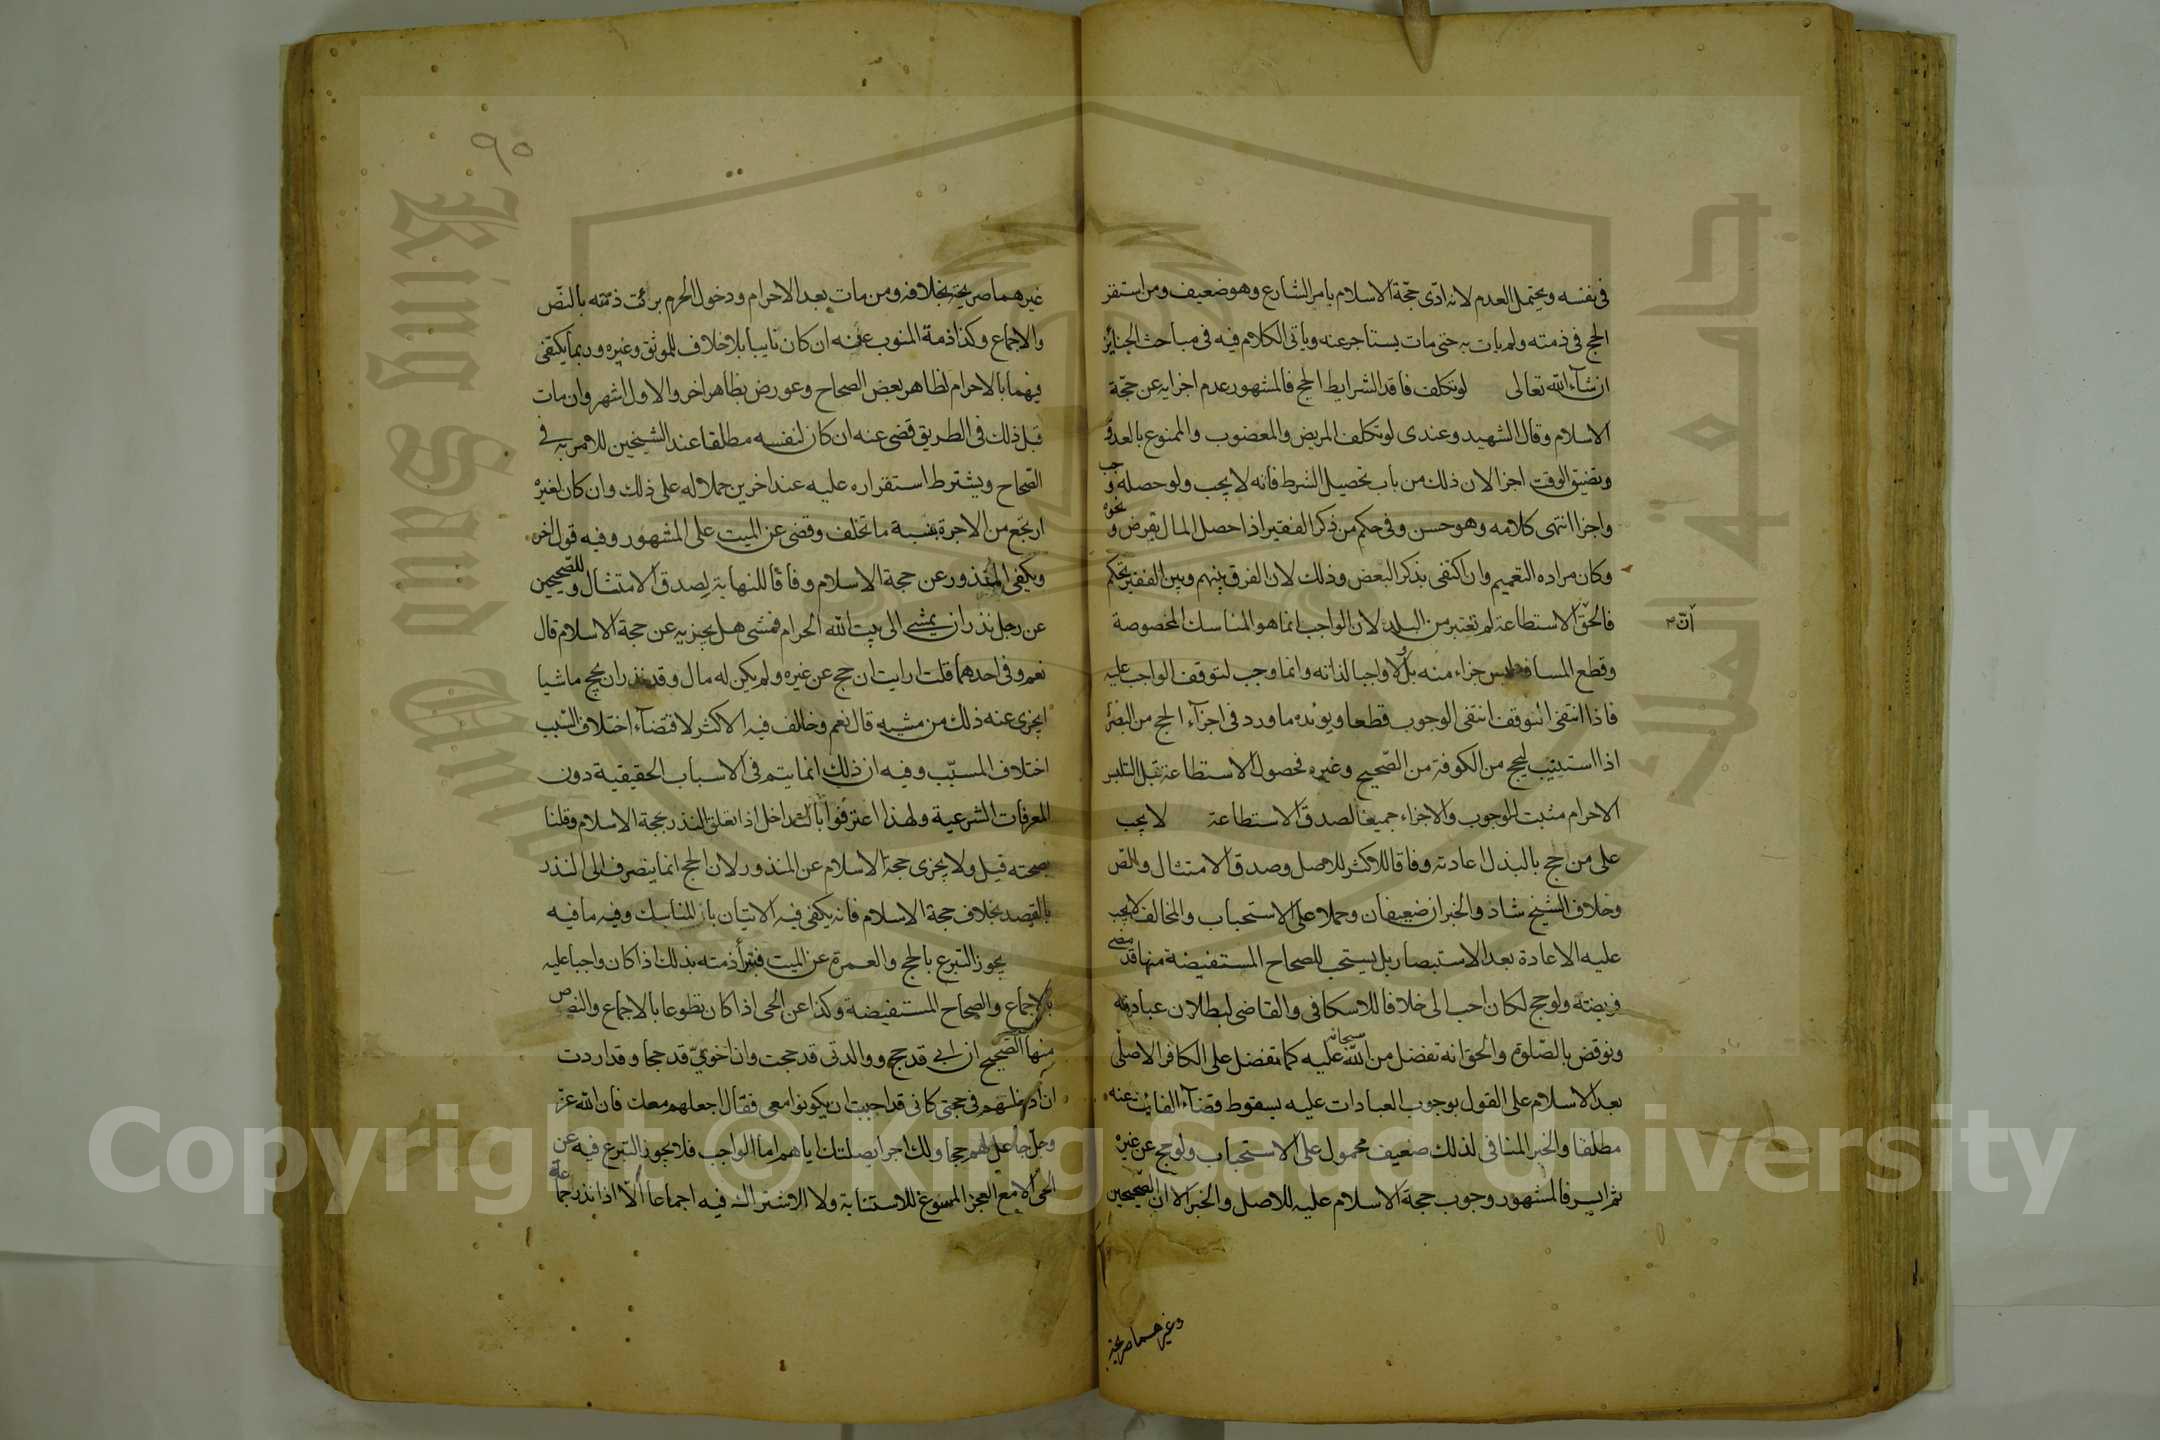 في نفسه ويحتمل العدم لانه ادى حجة الاسلام بامر الشارع وهو ضعيف ومن استقر
الحج في ذمته ولم يات به حتى مات يستاجر عنه وياتي الكلام فيه في مباحث الجنايز
ان شآء الله تعالى لو تكلف فاقد الشرايط الحج فالمشهور عدم اجزايه عن حجة
الاسلام وقال الشهيد وعندي لو تكلف المريض والمعضوب والممنوع بالعدو
وتضيق الوقت اجزا لان ذلك من باب تحصيل الشرط فانه لا يجب ولو حصله وجب
واجزا انتهى كلامه وهو حسن وفي حكم من ذكر الفقير اذا حصل المال بقرض ونحوه
وكان مراده التعميم وان اكتفى بذكر البعض وذلك لان الفرق بينهم وبين الفقير تحكم
فالحق الاستطاعة لم تعتبر من البلد لان الواجب انما هو المناسك المخصوصة
وقطع المسافة ليس جزاء منه بل ولا واجبا لذاته وانما وجب لتوقف الواجب عليه
فاذا انتفى التوقف انتفى الوجوب قطعا ويؤيده ما ورد في اجزآء الحج من البصرة
اذا استنيب ليحج من الكوفة من الصحيح وغيره فحصول الاستطاعة قبل التلبس
الاحرام مثبت للوجوب والاجزاء جميعا لصدق الاستطاعة لا يجب
على من حج بالبذل اعادته وفاقا للاكثر للاصل وصدق الامتثال وللنص
وخلاف الشيخ شاذ والخبران ضعيفان وحملا على الاستحباب والمخالف لا يجب
عليه الاعادة بعد الاستبصار بل يستحب للصحاح المستفيضة منها قد قضى
فريضته ولو حج لكان احب الي خلافا للاسكافي والقاضي لبطلان عبادته
ونوقض بالصلوة والحق انه تفضل من الله سبحانه عليه كما تفضل على الكافر الاصلي
بعد الاسلام على القول بوجوب العبادات عليه بسقوط قضآء الفائت عنه
مطلقا والخبر المنافي لذلك ضعيف محمول على الاستحباب ولو حج عن غيره
ثم ايسر فالمشهور وجوب حجة الاسلام عليه للاصل والخبر الا ان الصحيحين
وغيرهما صريحة
٩٥
غيرهما صريحة بخلافه ومن مات بعد الاحرام ودخول الحرم برئت ذمته بالنص
والاجماع وكذا ذمة المنوب عنه ان كان نايبا بلا خلاف للموثق وغيره وربما يكتفى
فيهما بالاحرام لظاهر بعض الصحاح وعورض بظاهر اخر والاول اشهر وان مات
قبل ذلك في الطريق قضى عنه ان كان لنفسه مطلقا عند الشيخين للامر به في
الصحاح ويشترط استقراره عليه عند اخرين حملا له على ذلك وان كان لغيره
ارتجع من الاجرة بنسبة ما تخلف وقضى عن الميت على المشهور وفيه قول اخر
ويكفي المنذور عن حجة الاسلام وفاقا للنهاية لصدق الامتثال وللصحيحين
عن رجل نذر ان يمشي الى بيت الله الحرام فمشى هل يجزيه عن حجة الاسلام قال
نعم وفي احدهما قلت ارايت ان حج عن غيره ولم يكن له مال وقد نذر ان يحج ماشيا
ايجزى عنه ذلك من مشيه قال نعم وخالف فيه الاكثر لاقتضآء اختلاف السبب
اختلاف المسبب وفيه ان ذلك انما يتم في الاسباب الحقيقية دون
المعرفات الشرعية ولهذا اعترفوا بالتداخل اذا تعلق النذر بحجة الاسلام وقلنا
بصحته قيل ولا يجزى حجة الاسلام عن المنذور لان الحج انما ينصرف الى النذر
بالقصد بخلاف حجة الاسلام فانه يكفي فيه الاتيان بالمناسك وفيه ما فيه
يجوز التبرع بالحج والعمرة عن الميت فتبرأ ذمته بذلك اذا كان واجبا عليه
بالاجماع والصحاح المستفيضة وكذا عن الحي اذا كان تطوعا بالاجماع والنصوص
منها الصحيح ان ابي قد حج ووالدتي قد حجت وان اخوي قد حجا وقد اردت
ان ادخلهم في حجتي كاني قد احببت ان يكونوا معي فقال اجعلهم معك فان الله عز
وجل جاعل لهم حجا ولك اجرا بصلتك اياهم اما الواجب فلا يجوز التبرع فيه عن
الحي الا مع العجز المسوغ للاستنابة ولا الاشتراك فيه اجماعا الا اذا نذر جماعة